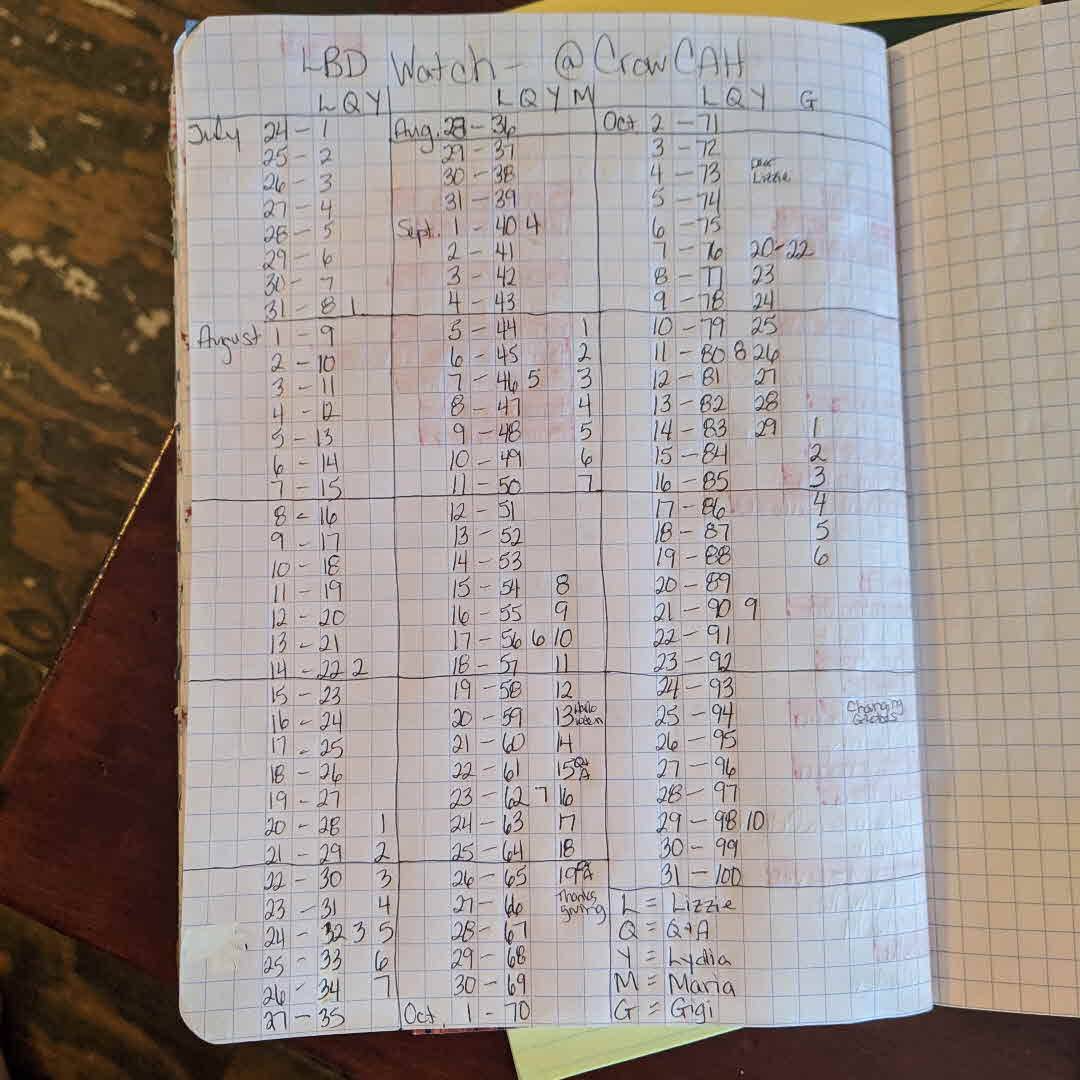 LBD Watch - @CrowCAH
L Q Y
July 24 - 1
25 - 2
26 - 3
27 - 4
28 - 5
29 - 6
30 - 7
31 - 8 1
August 1 - 9
2 - 10
3 - 11
4 - 12
5 - 13
6 - 14
7 - 15
8 - 16
9 - 17
10 - 18
11 - 19
12 - 20
13 - 21
14 - 22 2
15 - 23
16 - 24
17 - 25
18 - 26
19 - 27
20 - 28 1
21 - 29 2
22 - 30 3
23 - 31 4
24 - 32 3 5
25 - 33 6
26 - 34 7
27 - 35
L Q Y M
Aug. 28 - 36
29 - 37
30 - 38
31 - 39
Sept. 1 - 40 4
2 - 41
3 - 42
4 - 43
5 - 44 1
6 - 45 2
7 - 46 5 3
8 - 47 4
9 - 48 5
10 - 49 6
11 - 50 7
12 - 51
13 - 52
14 - 53
15 - 54 8
16 - 55 9
17 - 56 6 10
18 - 57 11
19 - 58 12
20 - 59 13
21 - 60 14
22 - 61 15 Q+A
23 - 62 7 16
24 - 63 17
25 - 64 18
26 - 65 19 Q+A
27 - 66 Thanks giving
28 - 67
29 - 68
30 - 69
Oct. 1 - 70
L Q Y G
Oct 2 - 71
3 - 72
4 - 73 Lizzie
5 - 74
6 - 75
7 - 76 20-22
8 - 77 23
9 - 78 24
10 - 79 25
11 - 80 8 26
12 - 81 27
13 - 82 28
14 - 83 29 1
15 - 84 2
16 - 85 3
17 - 86 4
18 - 87 5
19 - 88 6
20 - 89
21 - 90 9
22 - 91
23 - 92
24 - 93
25 - 94 Changing
26 - 95
27 - 96
28 - 97
29 - 98 10
30 - 99
31 - 100
L = Lizzie
Q = Q+A
Y = Lydia
M = Maria
G = Gigi